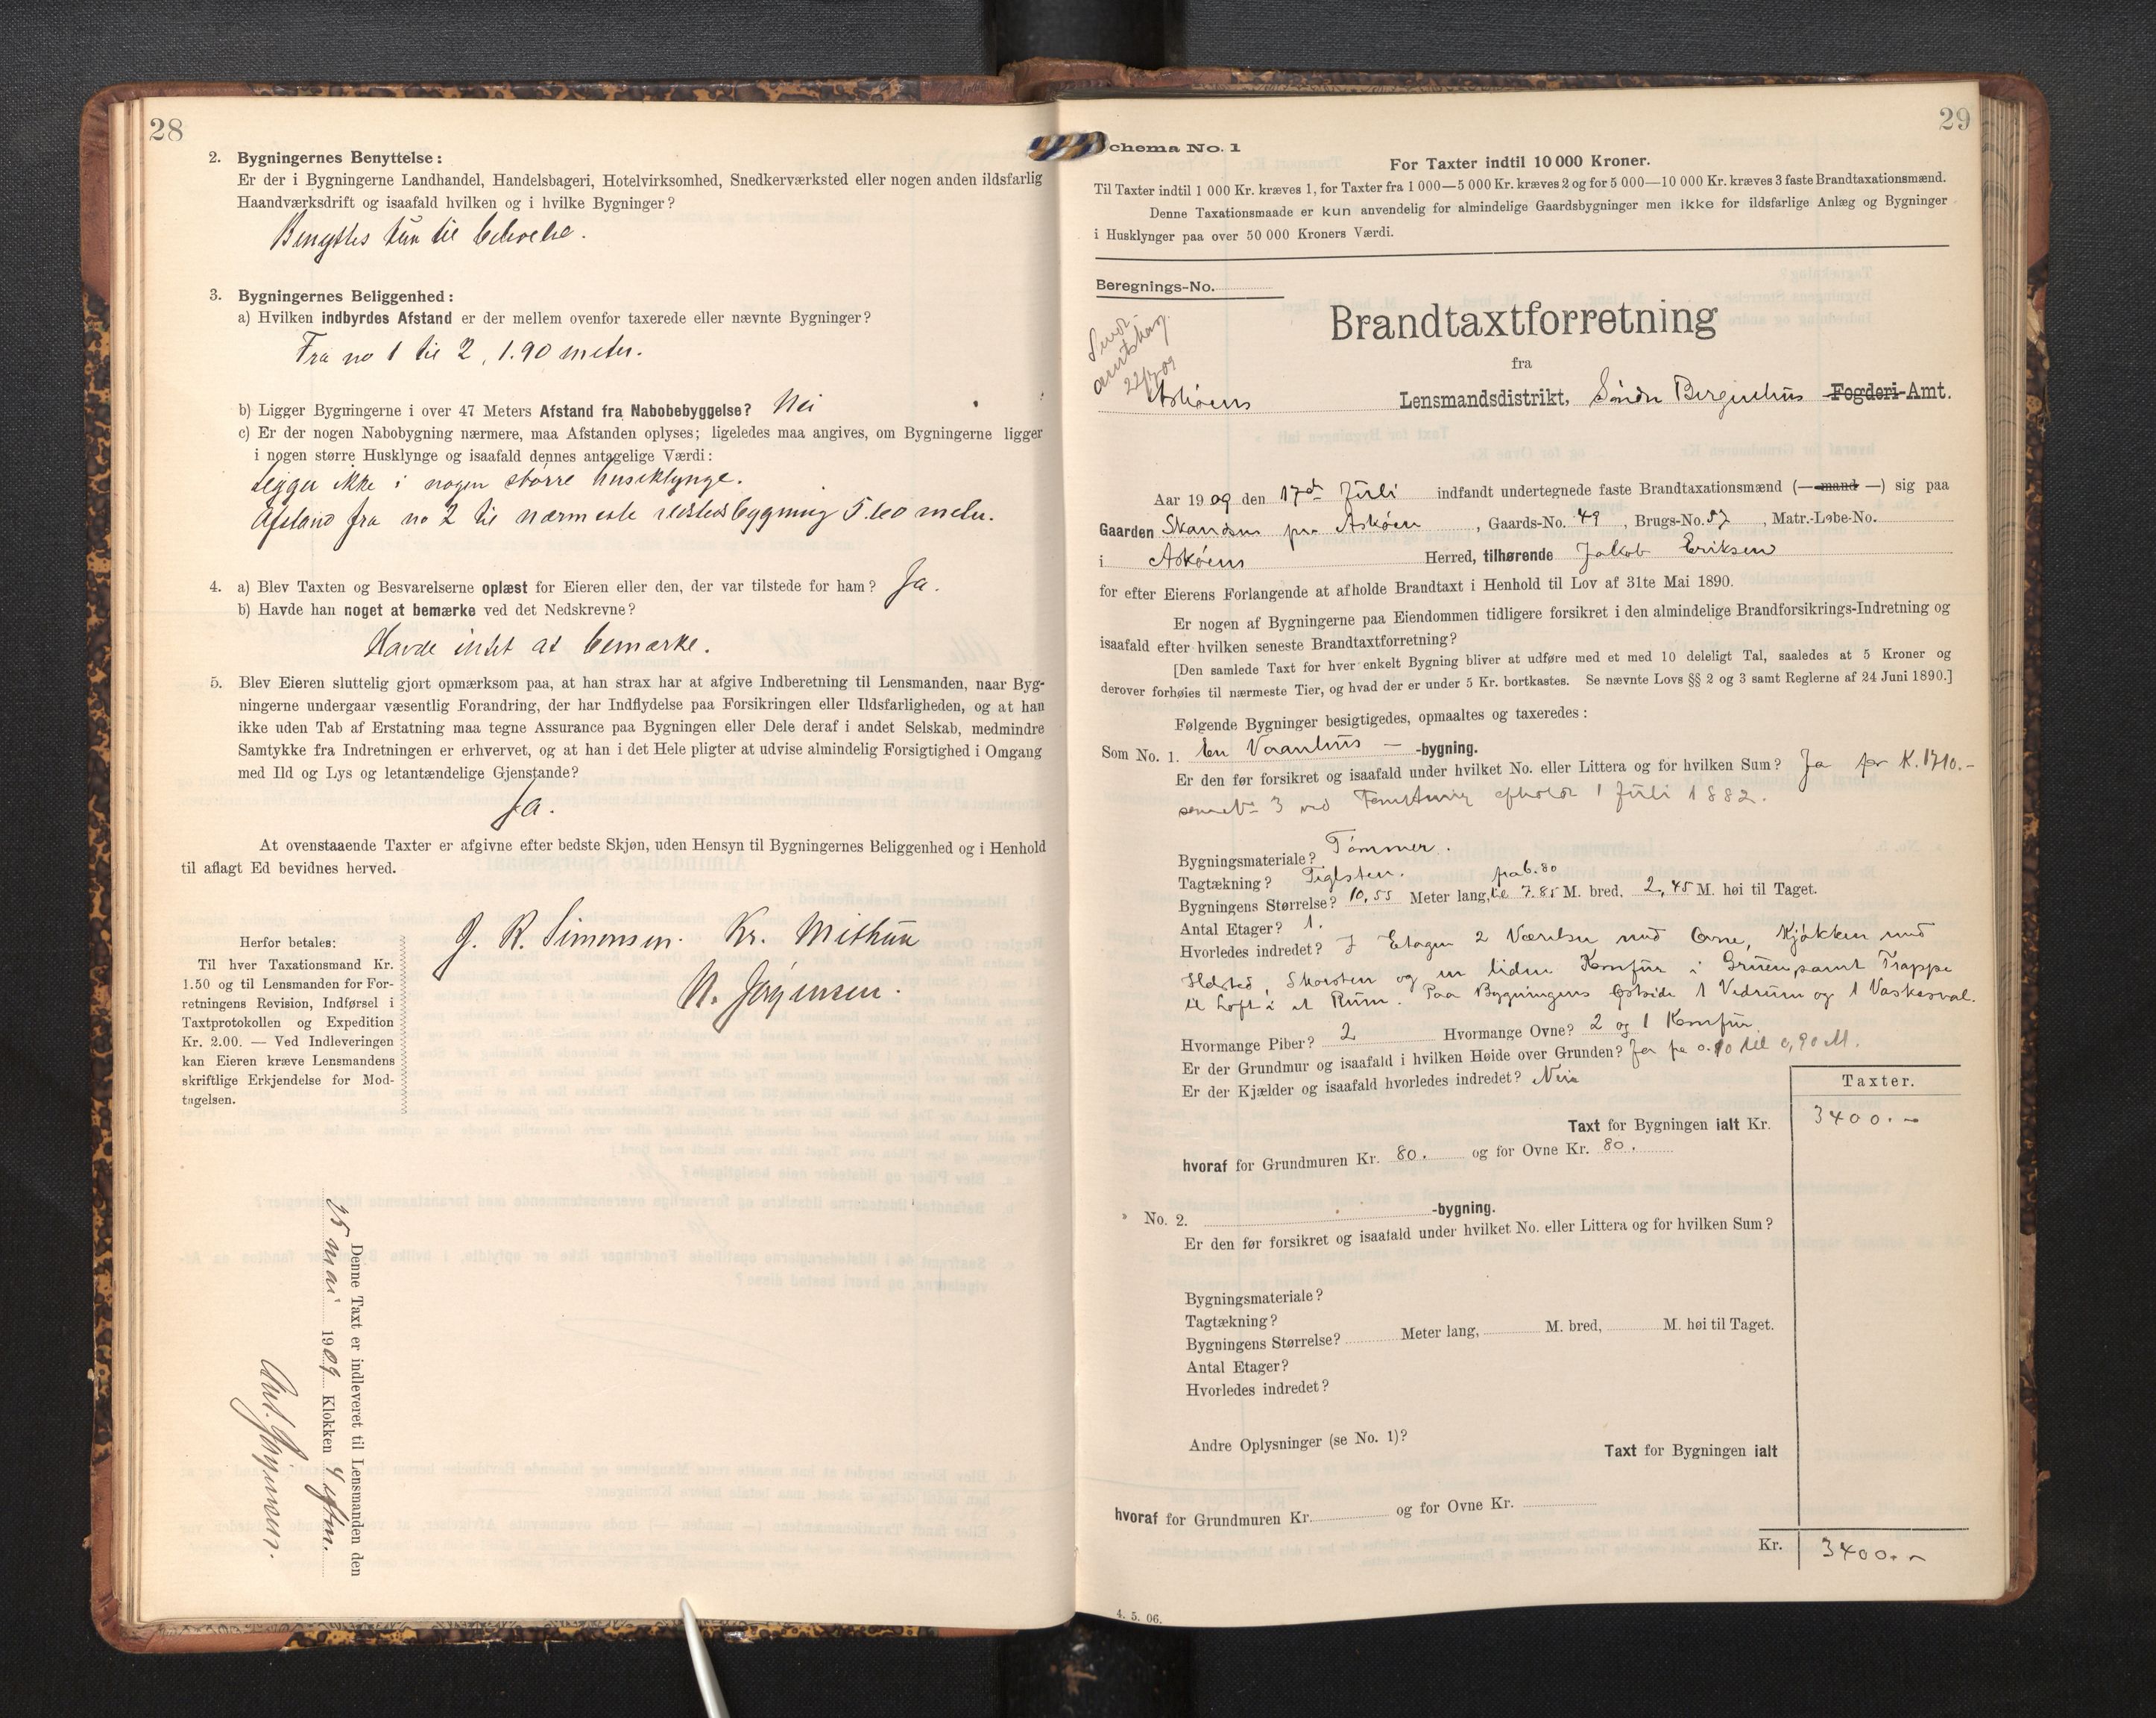 28
2. Bygningernes Benyttelse:
Er der i Bygningerne Landhandel, Handelsbageri, Hotelvirksomhed, Snedkerværksted eller nogen anden ildsfarlig
Haandværksdrift og isaafald hvilken og i hvilke Bygninger?
Benyttes kun til beboelse.
3. Bygningernes Beliggenhed:
a) Hvilken indbyrdes Afstand er der mellem ovenfor taxerede eller nævnte Bygninger?
Fra no 1 til 2, 1.90 meter.
b) Ligger Bygningerne i over 47 Meters Afstand fra Nabobebyggelse? Nei
c) Er der nogen Nabobygning nærmere, maa Afstanden oplyses; ligeledes maa angives, om Bygningerne ligger
i nogen større Husklynge og isaafald dennes antagelige Værdi:
Ligger ikke i nogen større husklynge.
Afstand fra no 2 til nærmeste ildstedsbygning 5.60 meter.
4. a) Blev Taxten og Besvarelserne oplæst for Eieren eller den, der var tilstede for ham? Ja.
b) Havde han noget at bemærke ved det Nedskrevne?
Havde intet at bemærke.
5. Blev Eieren sluttelig gjort opmærksom paa, at han strax har at afgive Indberetning til Lensmanden, naar Byg-
ningerne undergaar væsentlig Forandring, der har Indflydelse paa Forsikringen eller Ildsfarligheden, og at han
ikke uden Tab af Erstatning maa tegne Assurance paa Bygningen eller Dele deraf i andet Selskab, medmindre
Samtykke fra Indretningen er erhvervet, og at han i det Hele pligter at udvise almindelig Forsigtighed i Omgang
med Ild og Lys og letantændelige Gjenstande?
Ja.
At ovenstaaende Taxter er afgivne efter bedste Skjøn, uden Hensyn til Bygningernes Beliggenhed og i Henhold
til aflagt Ed bevidnes herved.
J. R. Simonsen. Kr. Mithun
N. Jørgensen.
Herfor betales:
Til hver Taxationsmand Kr.
1.50 og til Lensmanden for For-
retningens Revision, Indførsel i
Taxtprotokollen og Expedition
Kr. 2.00. — Ved Indleveringen
kan Eieren kræve Lensmandens
skriftlige Erkjendelse for Mod-
tagelsen.
Denne Taxt er indleveret til Lensmanden den
25 mai 1909 Klokken 4 eftm.
And. Jørgensen.
29
Schema No. 1
For Taxter indtil 10 000 Kroner.
Til Taxter indtil 1 000 Kr. kræves 1, for Taxter fra 1 000—5 000 Kr. kræves 2 og for 5 000—10 000 Kr. kræves 3 faste Brandtaxationsmænd.
Denne Taxationsmaade er kun anvendelig for almindelige Gaardsbygninger men ikke for ildsfarlige Anlæg og Bygninger
i Husklynger paa over 50 000 Kroners Værdi.
Beregnings-No.
22/7 09
Brandtaxtforretning
fra
Askøens Lensmandsdistrikt, Søndre Bergenhus Fogderi-Amt.
Aar 1909 den 17de Juli indfandt undertegnede faste Brandtaxationsmænd (— mand —) sig paa
Gaarden Skansen paa Askøen, Gaards-No. 49, Brugs-No. 57, Matr.-Løbe-No.
i Askøens Herred, tilhørende Jakob Eriksen
for efter Eierens Forlangende at afholde Brandtaxt i Henhold til Lov af 31te Mai 1890.
Er nogen af Bygningerne paa Eiendommen tidligere forsikret i den almindelige Brandforsikrings-Indretning og
isaafald efter hvilken seneste Brandtaxtforretning?
[Den samlede Taxt for hver enkelt Bygning bliver at udføre med et med 10 deleligt Tal, saaledes at 5 Kroner og
derover forhøies til nærmeste Tier, og hvad der er under 5 Kr. bortkastes. Se nævnte Lovs §§ 2 og 3 samt Reglerne af 24 Juni 1890.]
Følgende Bygninger besigtigedes, opmaaltes og taxeredes:
Som No. 1. En Vaanhus — -bygning.
Er den før forsikret og isaafald under hvilket No. eller Littera og for hvilken Sum? Ja for K. 1710.-
som No 3 ved Forretning afholdt 1 Juli 1882.
Bygningsmateriale? Tømmer.
Tagtækning? Teglsten.
fra 6.80
Bygningens Størrelse? 10,55 Meter lang, til 7.85 M. bred, 2,45 M. høi til Taget.
Antal Etager? 1.
Hvorledes indredet? I Etagen 2 Værelser med Ovne, Kjøkken med
Ildsted, Skorsten og en liden Komfur i Gruen samt Trappe
til Loft i et Rum. Paa Bygningens Østside 1 Vedrum og 1 Vaskesval.
Hvormange Piber? 2 Hvormange Ovne? 2 og 1 Komfur
Er der Grundmur og isaafald i hvilken Høide over Grunden? Ja fra 0.10 til 0,90 M.
Er der Kjælder og isaafald hvorledes indredet? Nei
Taxter.
Taxt for Bygningen ialt Kr. 3400.-
hvoraf for Grundmuren Kr. 80. og for Ovne Kr. 80.
» No. 2. -bygning.
Er den før forsikret og isaafald under hvilket No. eller Littera og for hvilken Sum?
Bygningsmateriale?
Tagtækning?
Bygningens Størrelse? Meter lang, M. bred, M. høi til Taget.
Antal Etager?
Hvorledes indredet?
Andre Oplysninger (se No. 1)?
Taxt for Bygningen ialt
hvoraf for Grundmuren Kr. og for Ovne Kr.
Kr. 3400.-
4. 5. 06.